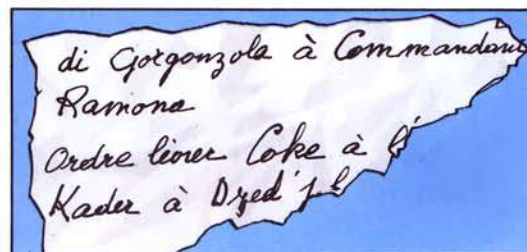 di Gorgonzola à Commandant
Ramona
Ordre livrer Coke à
Kader à Djed